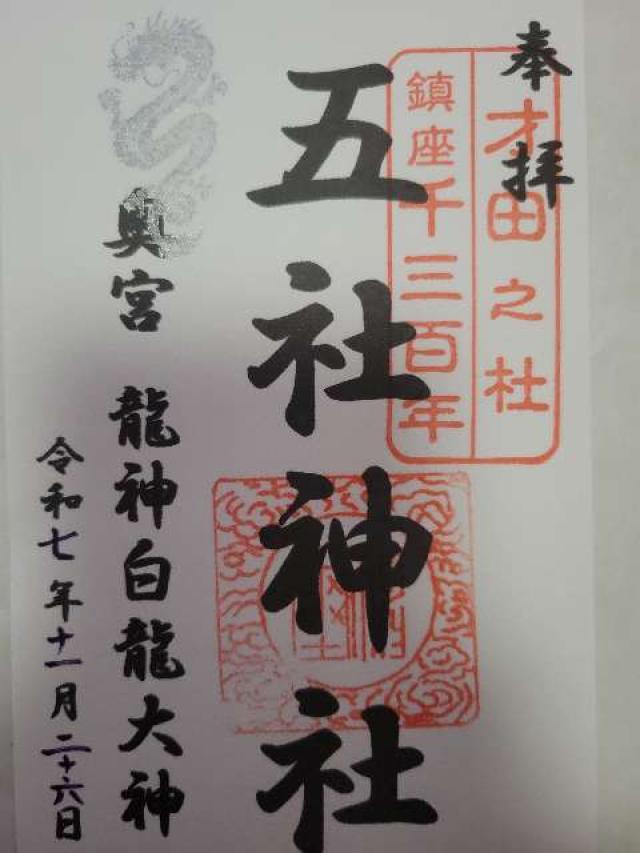 奉拝
才田之杜
鎮座千三百年
五社神社
奥宮 龍神白龍大神
令和七年十一月二十六日